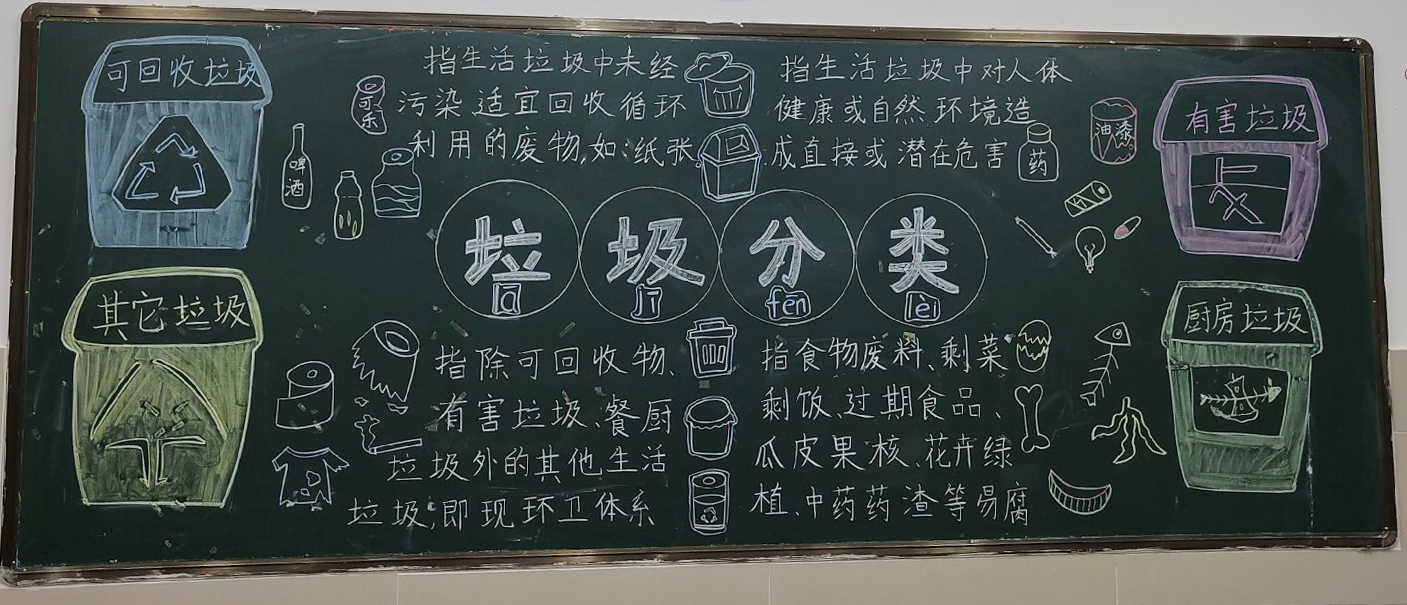 可回收垃圾
可乐
啤酒
指生活垃圾中未经
污染适宜回收循环
利用的废物,如:纸张
指生活垃圾中对人体
健康或自然环境造
成直接或潜在危害
药
油漆
有害垃圾
垃圾分类
lā jī fēn lèi
其它垃圾
指除可回收物、
有害垃圾、餐厨
垃圾外的其他生活
垃圾,即现环卫体系
指食物废料、剩菜
剩饭、过期食品、
瓜皮果核、花卉绿
植、中药药渣等易腐
厨房垃圾